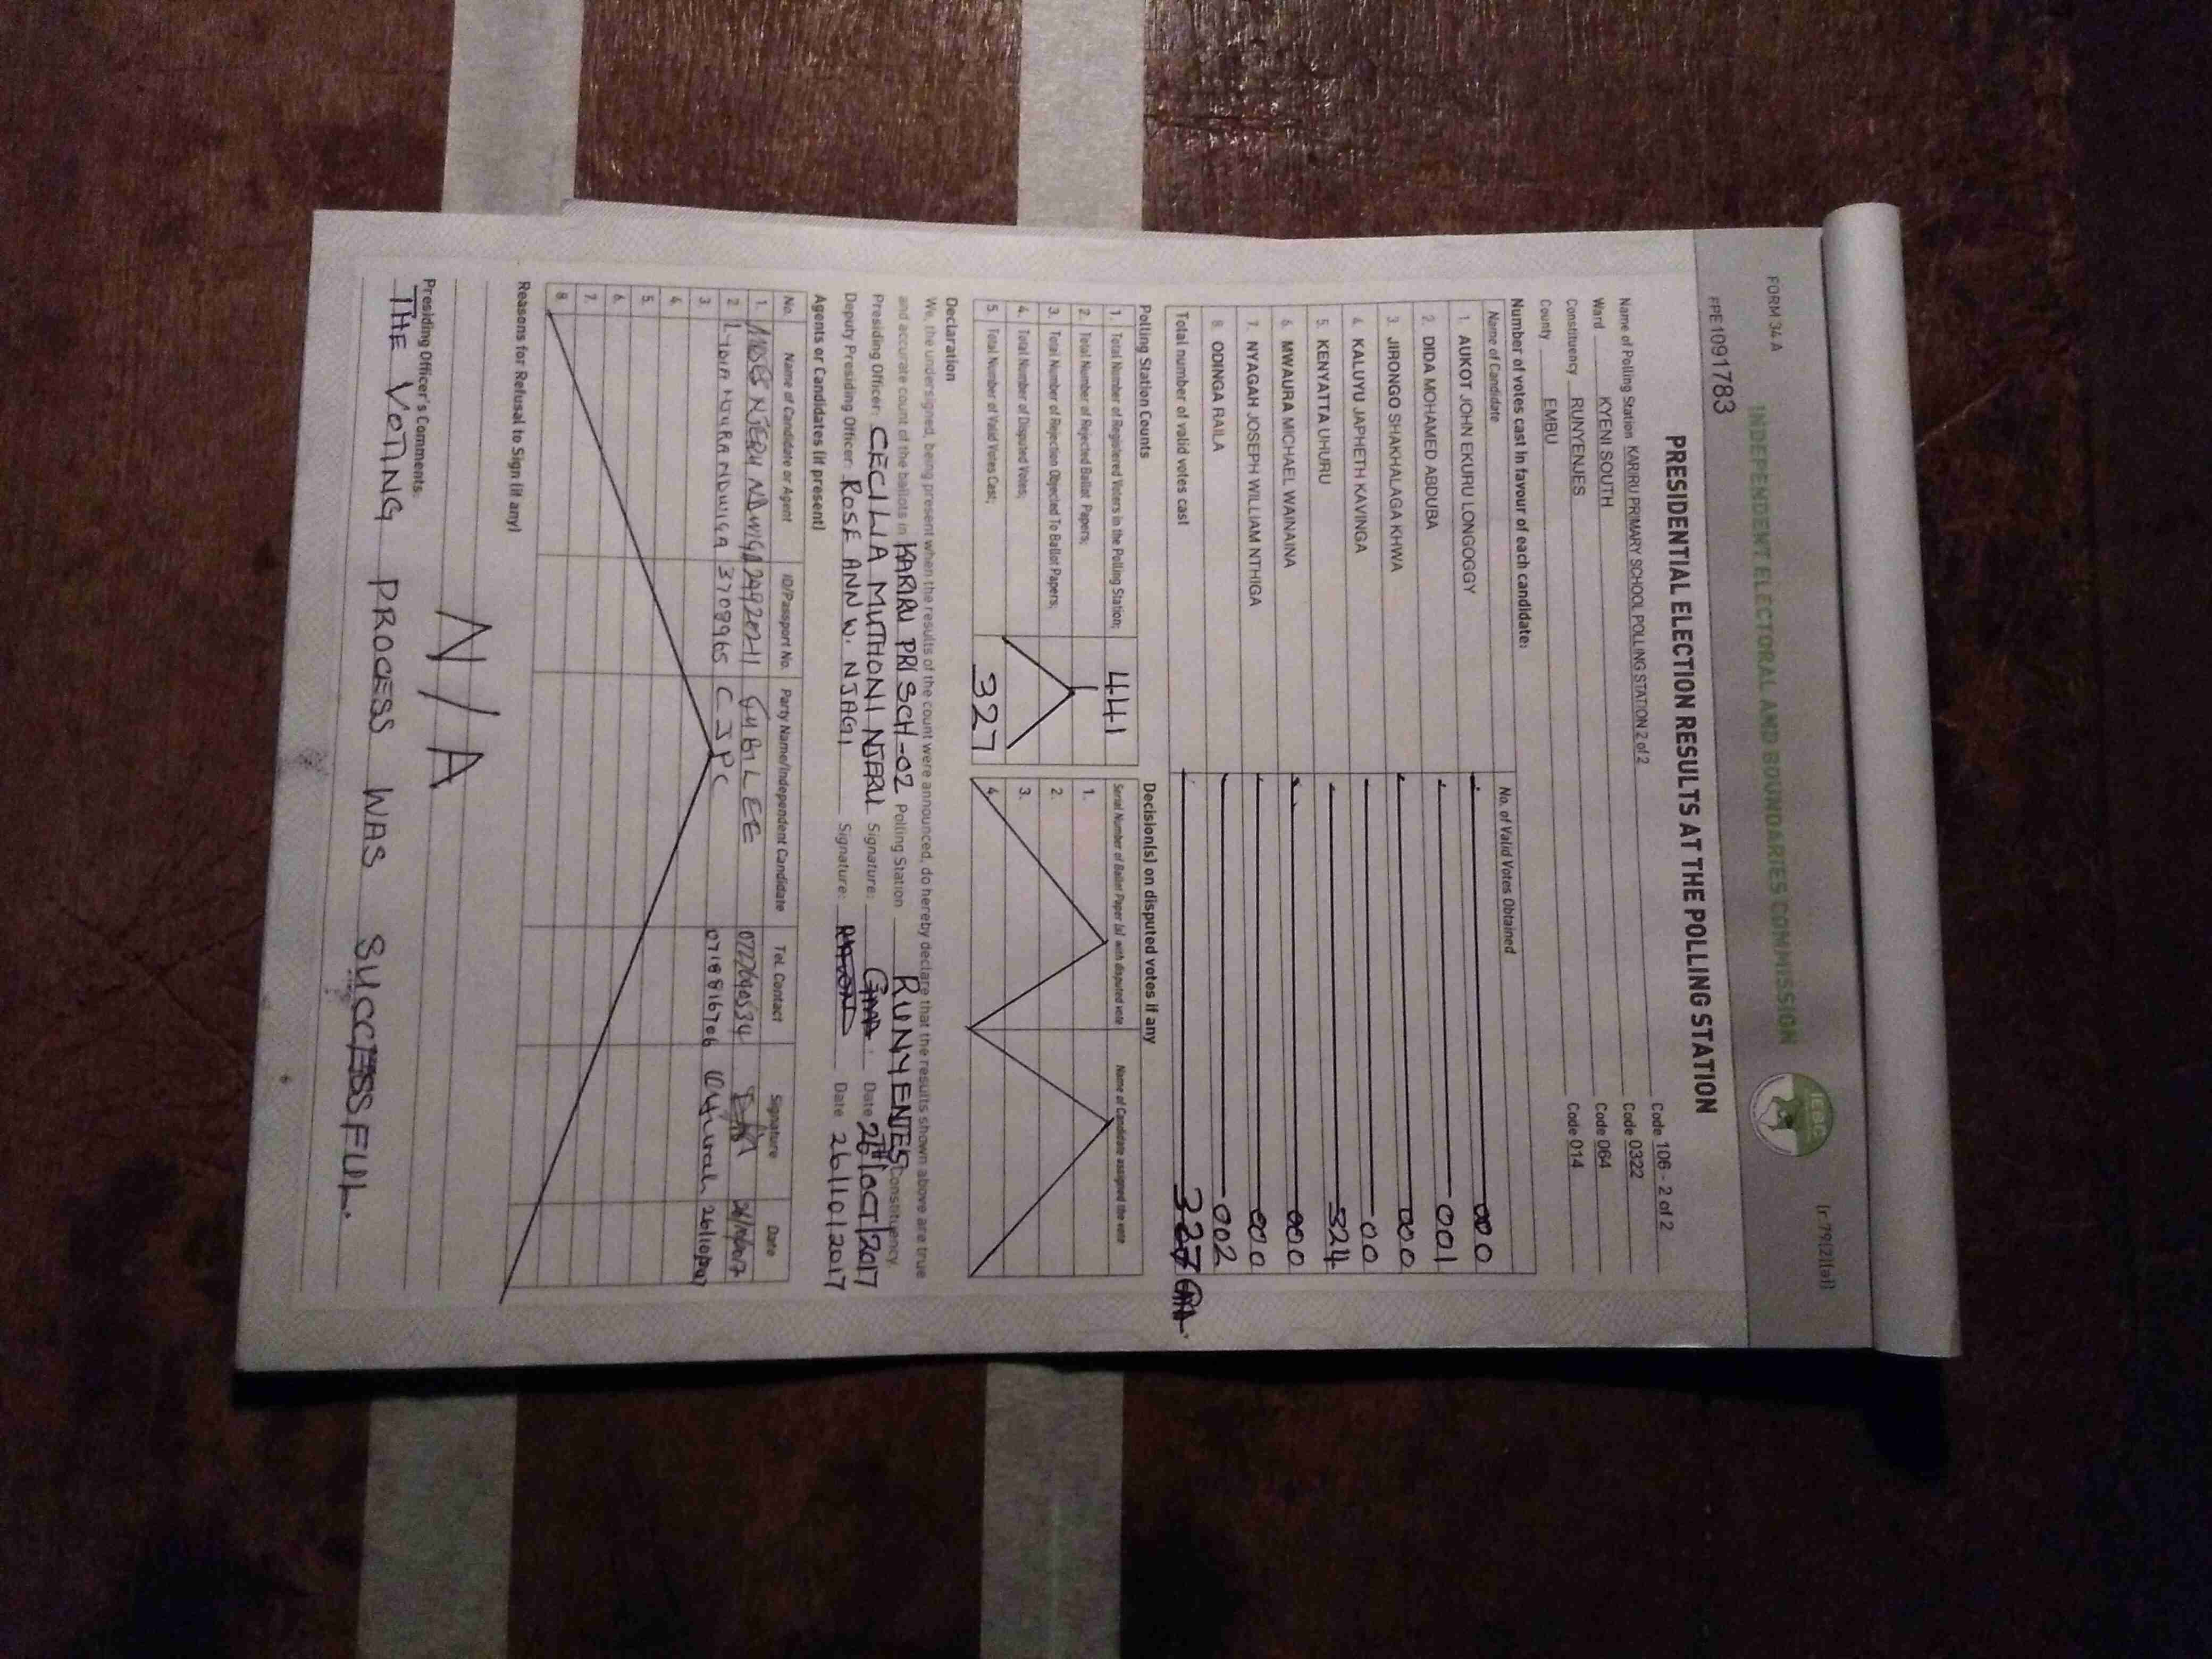 FORM 34 A
(r.79(2)(a))
INDEPENDENT ELECTORAL AND BOUNDARIES COMMISSION
IEBC
PPE 1091783
PRESIDENTIAL ELECTION RESULTS AT THE POLLING STATION
Name of Polling Station KARIRU PRIMARY SCHOOL POLLING STATION 2 of 2 Code 106 - 2 of 2
Ward KYENI SOUTH Code 0322
Constituency RUNYENJES Code 064
County EMBU Code 014
Number of votes cast in favour of each candidate:
Name of Candidate No. of Valid Votes Obtained
1. AUKOT JOHN EKURU LONGOGGY 000
2. DIDA MOHAMED ABDUBA 001
3. JIRONGO SHAKHALAGA KHWA 000
4. KALUYU JAPHETH KAVINGA 00
5. KENYATTA UHURU 324
6. MWAURA MICHAEL WAINAINA 000
7. NYAGAH JOSEPH WILLIAM NTHIGA 000
8. ODINGA RAILA 002
Total number of valid votes cast 327
Polling Station Counts
1. Total Number of Registered Voters in the Polling Station; 441
2. Total Number of Rejected Ballot Papers;
3. Total Number of Rejection Objected To Ballot Papers;
4. Total Number of Disputed Votes;
5. Total Number of Valid Votes Cast; 327
Decision(s) on disputed votes if any
Serial Number of Ballot Paper (s) with disputed vote Name of Candidate assigned the vote
1.
2.
3.
4.
Declaration
We, the undersigned, being present when the results of the count were announced, do hereby declare that the results shown above are true
and accurate count of the ballots in KARIRU PRI SCH-02 Polling Station RUNYENJES Constituency
Presiding Officer: CECILIA MUTHONI NJERU Signature: Date 26TH/OCT/2017
Deputy Presiding Officer: ROSE ANN W. NJAGI Signature: Date 26/10/2017
Agents or Candidates (if present)
No. Name of Candidate or Agent ID/Passport No. Party Name/Independent Candidate Tel. Contact Signature Date
1. MOSES NJERU JUBILEE
2. LYDIA 3708965 CJPC 0718816706
3.
4.
5.
6.
7.
8.
Reasons for Refusal to Sign (if any)
N/A
Presiding Officer's Comments:
THE VOTING PROCESS WAS SUCCESSFUL.